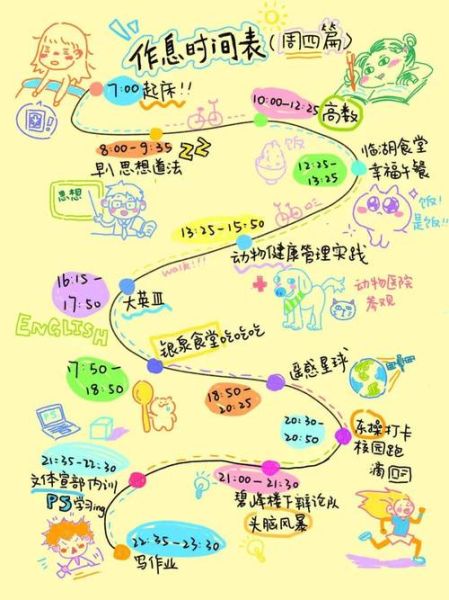 作息时间表(周四篇)
7:00 起床!!
10:00-12:25 高数
8:00-9:35
早八 思想道法 ZZ
饭
临湖食堂
幸福午餐
12:25-
13:25
思想
饭!
是饭!!
13:25-15:50
动物健康管理实践
walk!!!
16:15-
17:50
大英Ⅲ
动物医院
参观
ENGLISH
银泉食堂吃吃吃
17:50-
18:50
遥感星球
18:50-
20:25
20:30-
20:50
东操打卡
校园跑
滴
PS
21:35-22:30
文体宣部内训
PS学习ing
21:00-21:30
碧峰楼下辩论队
头脑风暴
22:35-23:30
写作业